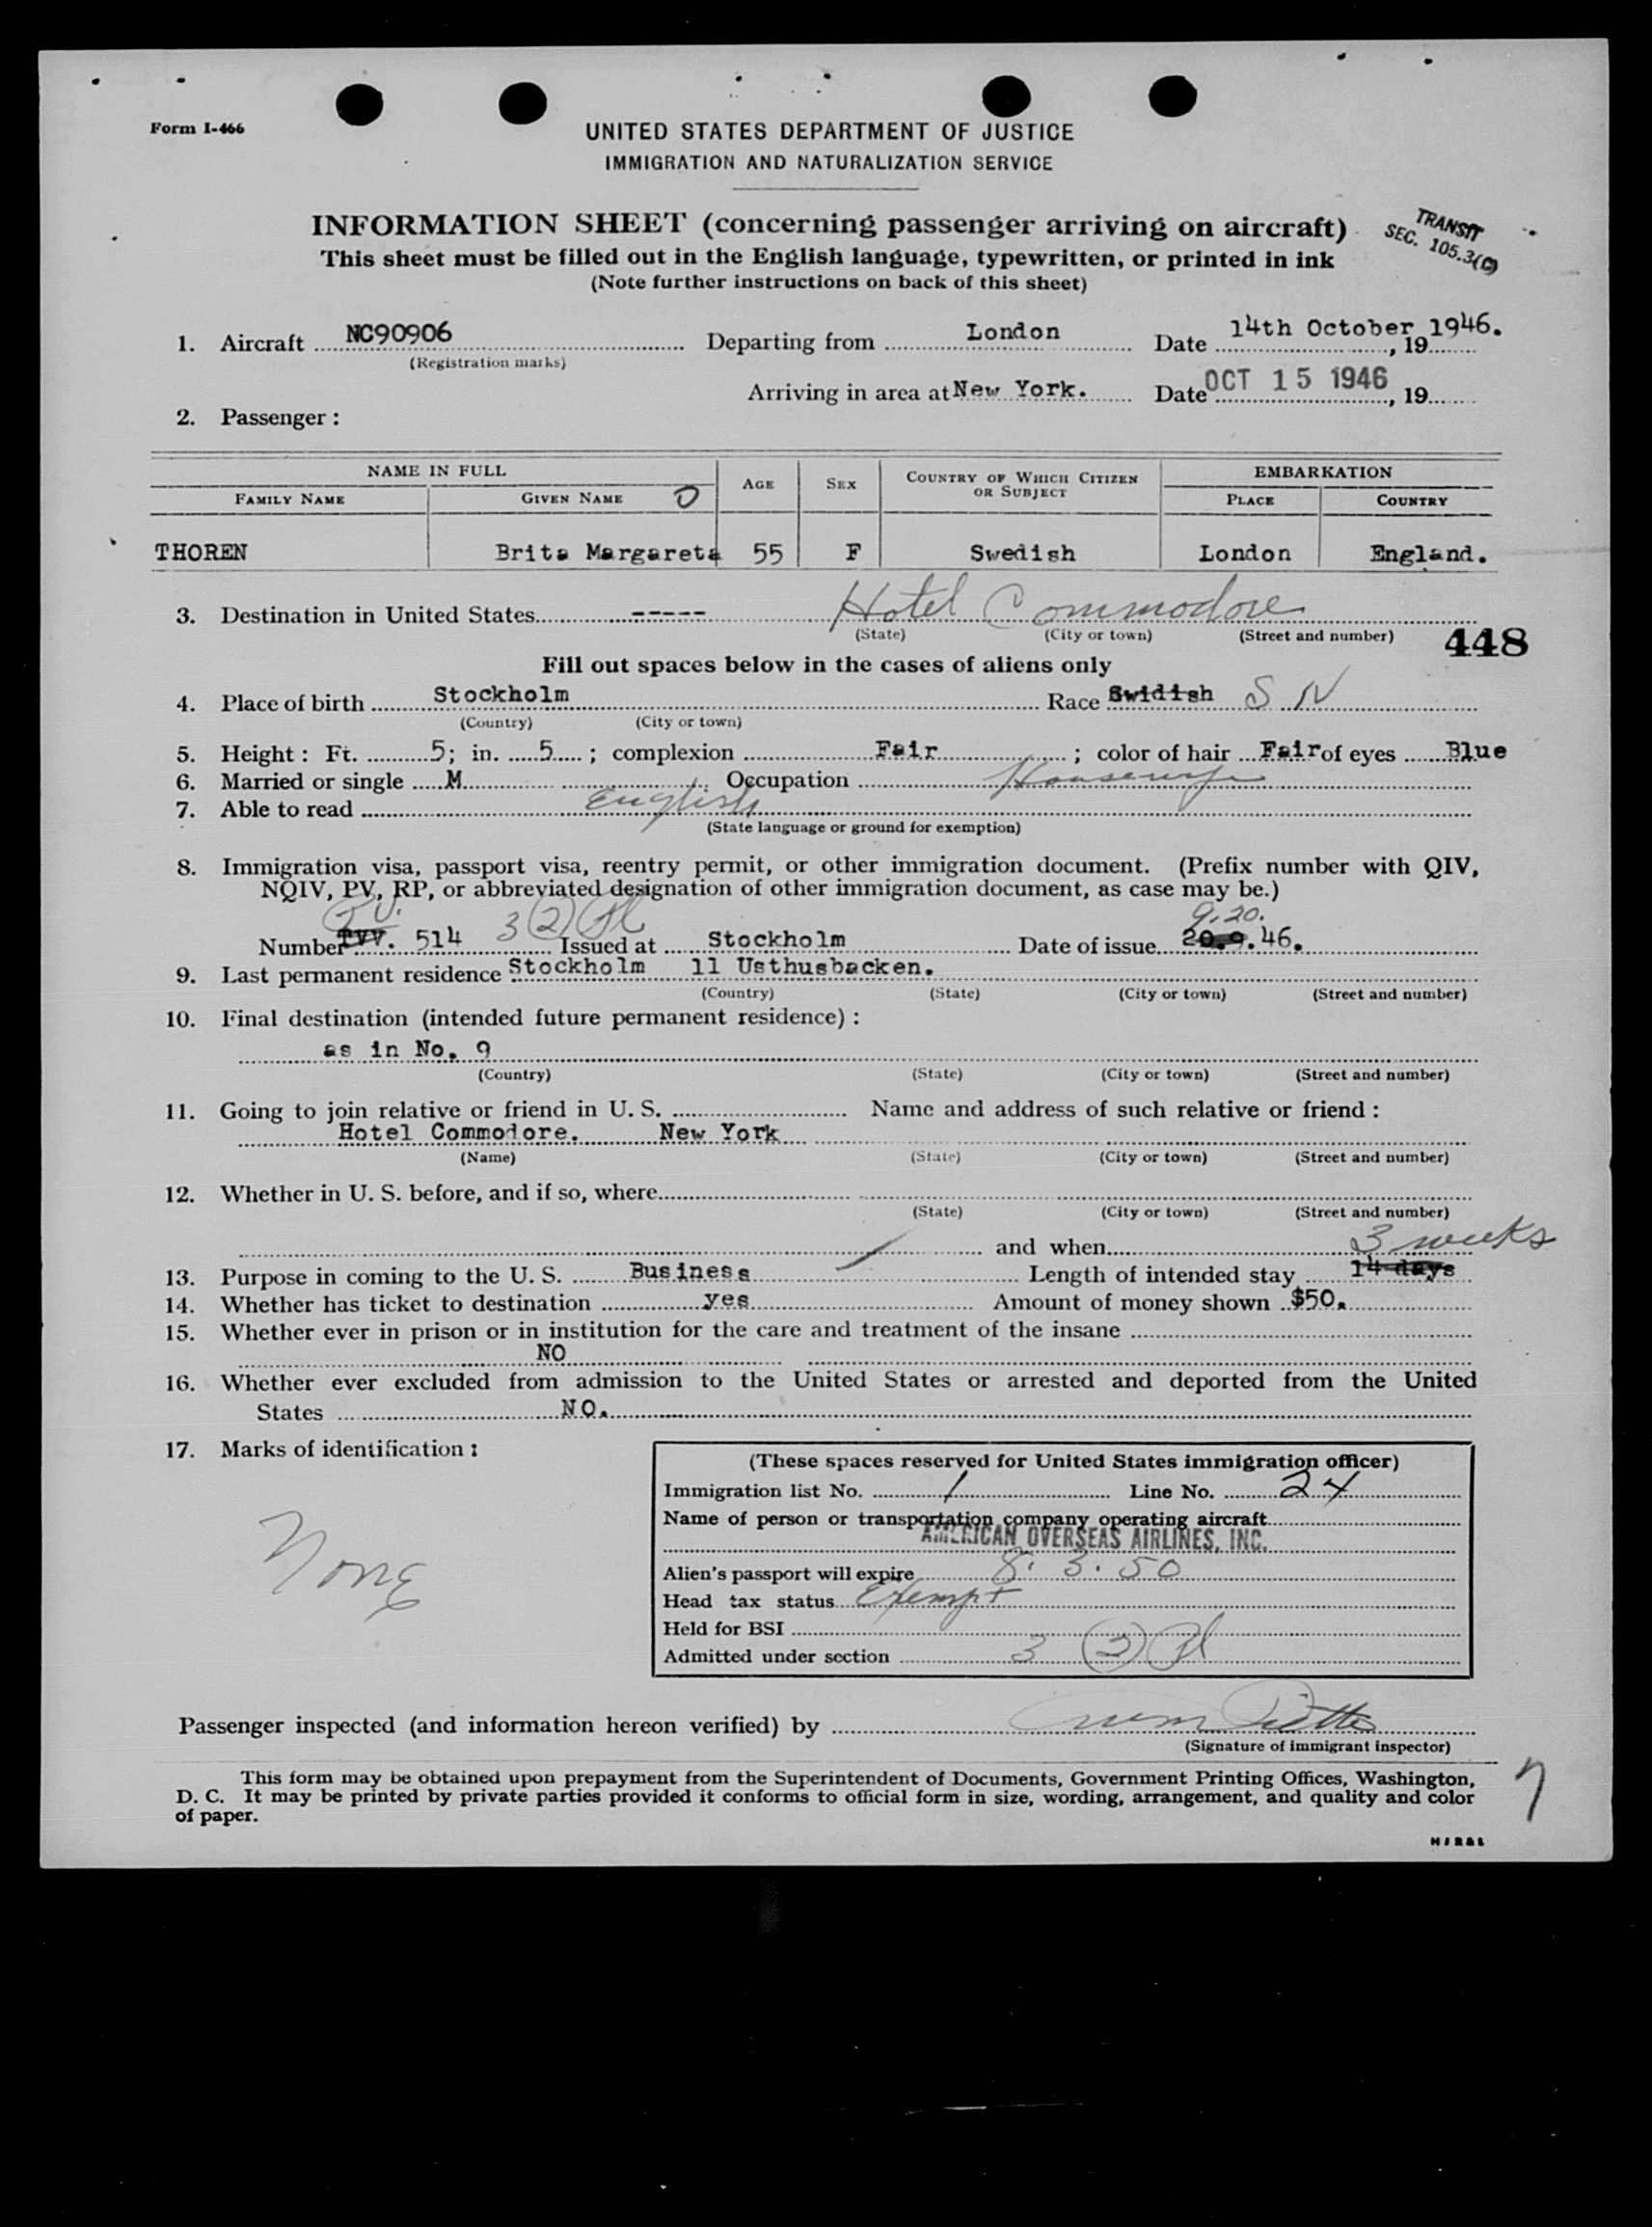 Form I-466
UNITED STATES DEPARTMENT OF JUSTICE
IMMIGRATION AND NATURALIZATION SERVICE
INFORMATION SHEET (concerning passenger arriving on aircraft)
TRANSIT
SEC. 105.3(C)
This sheet must be filled out in the English language, typewritten, or printed in ink
(Note further instructions on back of this sheet)
1. Aircraft NC90906 Departing from London Date 14th October 1946. , 19
(Registration marks)
Arriving in area at New York. Date OCT 15 1946 , 19
2. Passenger :
NAME IN FULL AGE SEX COUNTRY OF WHICH CITIZEN OR SUBJECT EMBARKATION
FAMILY NAME GIVEN NAME PLACE COUNTRY
THOREN Brita Margareta 55 F Swedish London England.
3. Destination in United States ----- Hotel Commodore
(State) (City or town) (Street and number)
448
Fill out spaces below in the cases of aliens only
4. Place of birth Stockholm Race Swidish S N
(Country) (City or town)
5. Height : Ft. 5; in. 5 ; complexion Fair ; color of hair Fair of eyes Blue
6. Married or single M Occupation Housewife
7. Able to read English
(State language or ground for exemption)
8. Immigration visa, passport visa, reentry permit, or other immigration document. (Prefix number with QIV,
NQIV, PV, RP, or abbreviated designation of other immigration document, as case may be.)
9.20.
Number 514 3 (2) Issued at Stockholm Date of issue 20.9.46.
9. Last permanent residence Stockholm 11 Usthusbacken.
(Country) (State) (City or town) (Street and number)
10. Final destination (intended future permanent residence) :
as in No. 9
(Country) (State) (City or town) (Street and number)
11. Going to join relative or friend in U. S. Name and address of such relative or friend :
Hotel Commodore. New York
(Name) (State) (City or town) (Street and number)
12. Whether in U. S. before, and if so, where
(State) (City or town) (Street and number)
and when 3 weeks
13. Purpose in coming to the U. S. Business Length of intended stay 14 days
14. Whether has ticket to destination yes Amount of money shown $50.
15. Whether ever in prison or in institution for the care and treatment of the insane
NO
16. Whether ever excluded from admission to the United States or arrested and deported from the United
States NO.
17. Marks of identification :
None
(These spaces reserved for United States immigration officer)
Immigration list No. 1 Line No. 24
Name of person or transportation company operating aircraft
AMERICAN OVERSEAS AIRLINES, INC.
Alien's passport will expire 8. 3. 50
Head tax status Exempt
Held for BSI
Admitted under section 3 (2)
Passenger inspected (and information hereon verified) by
(Signature of immigrant inspector)
This form may be obtained upon prepayment from the Superintendent of Documents, Government Printing Offices, Washington,
D. C. It may be printed by private parties provided it conforms to official form in size, wording, arrangement, and quality and color
of paper.
7